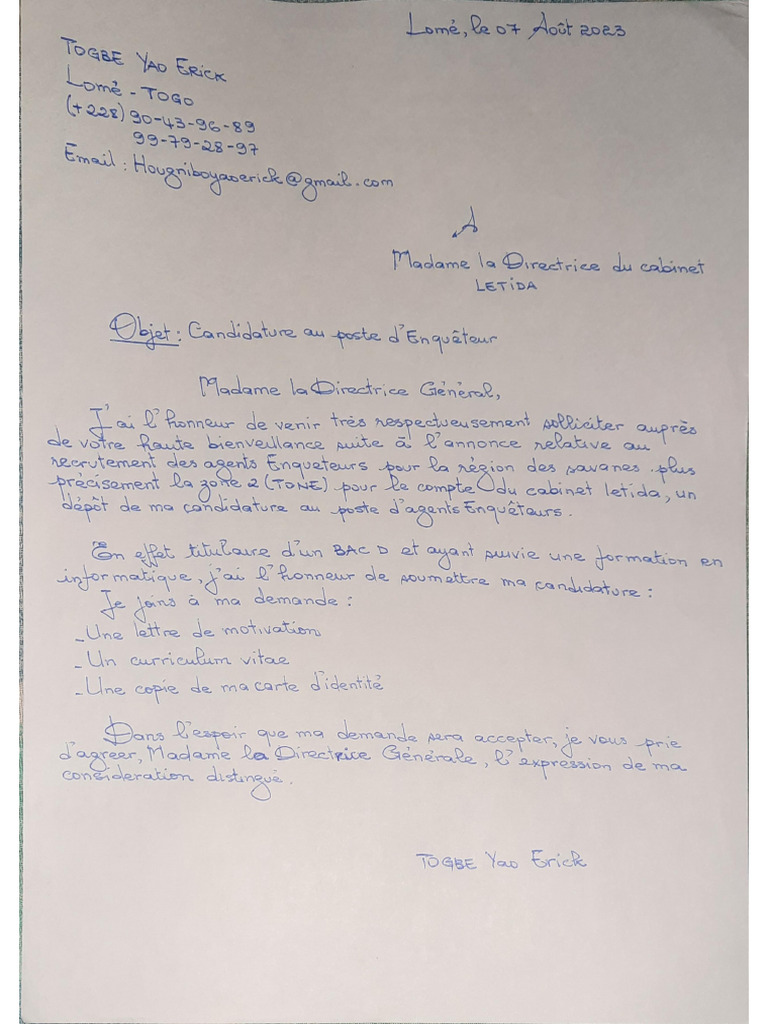 Lomé, le 07 Août 2023
TOGBE YAO ERICK
Lomé - TOGO
(+228) 90-43-96-89
99-79-28-97
Email : Hougniboyaoerick@gmail.com
A
Madame la Directrice du cabinet
LETIDA
Objet : Candidature au poste d'Enquêteur
Madame la Directrice Général,
J'ai l'honneur de venir très respectueusement solliciter auprès
de votre haute bienveillance suite à l'annonce relative au
recrutement des agents Enqueteurs pour la région des savanes plus
précisement la zone 2 (TONE) pour le compte du cabinet letida, un
dépôt de ma candidature au poste d'agents Enquêteurs.
En effet titulaire d'un BAC D et ayant suivie une formation en
informatique, j'ai l'honneur de soumettre ma candidature :
Je joins à ma demande :
- Une lettre de motivation
- Un curriculum vitae
- Une copie de ma carte d'identité
Dans l'espoir que ma demande sera accepter, je vous prie
d'agreer, Madame la Directrice Générale, l'expression de ma
consideration distingué.
TOGBE Yao Erick